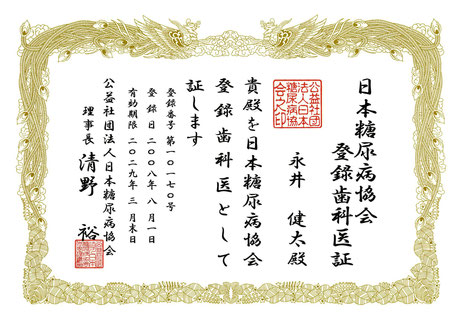 日本糖尿病協会
登録歯科医証
公益社団
法人日本
糖尿病協
会之印
永井 健太殿
貴殿を日本糖尿病協会
登録歯科医として
証します
登録番号 第一〇一七〇号
登録日 二〇〇八年 八月一日
有効期限 二〇二九年 三月末日
公益社団法人日本糖尿病協会
理事長 清野 裕